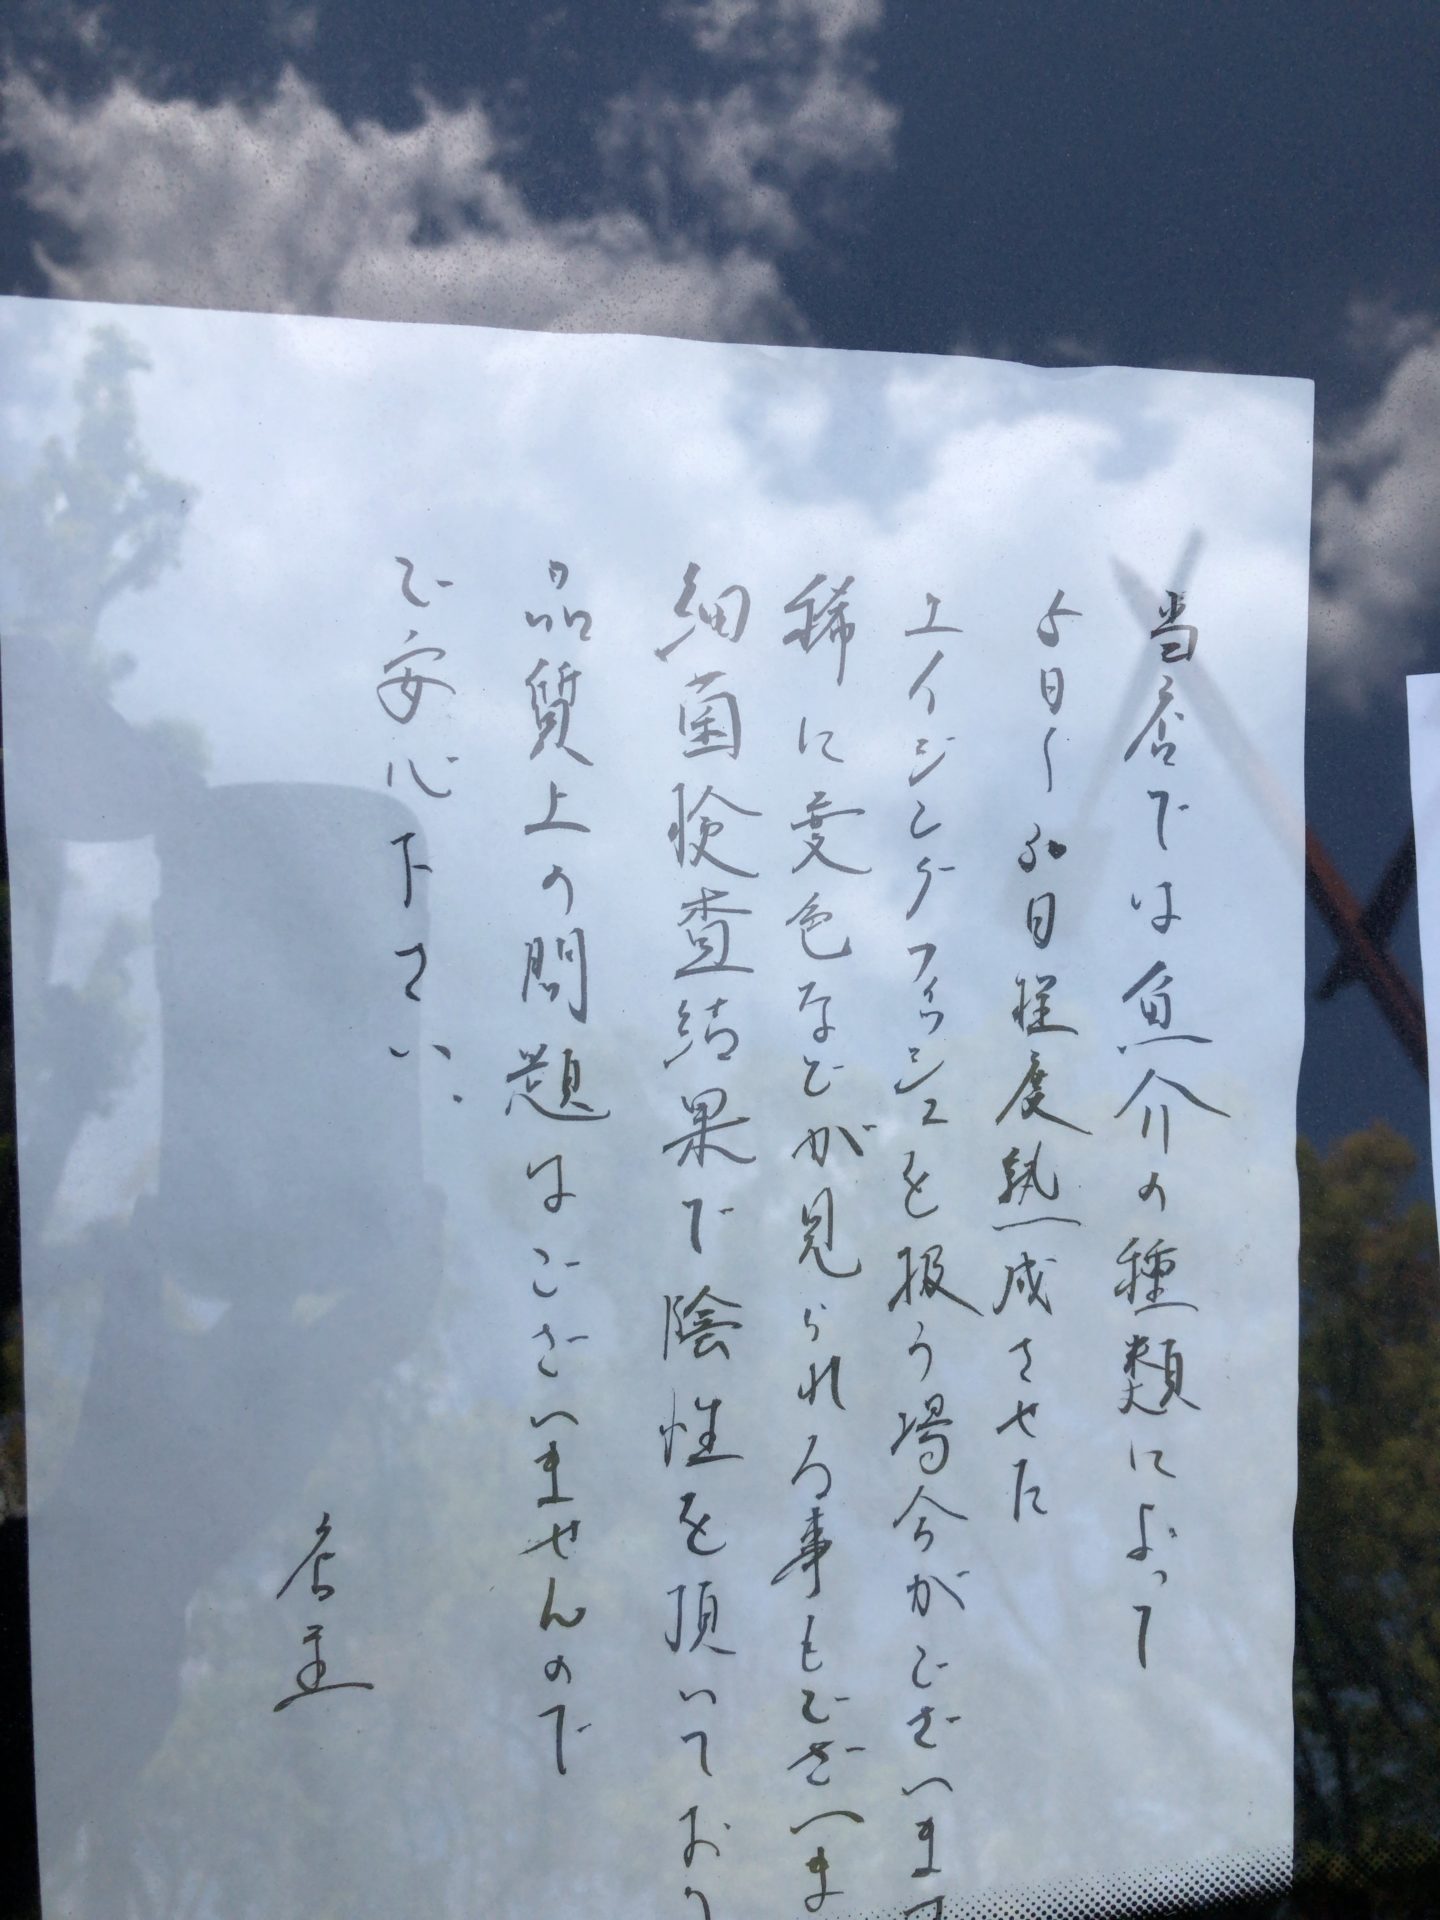 当店では魚介の種類によって
日〜 日程度熟成させた
エイジングフィッシュを扱う場合がございます
稀に変色などが見られる事もございま
細菌検査結果で陰性を頂いており
品質上の問題はございませんので
ご安心下さい.
店主